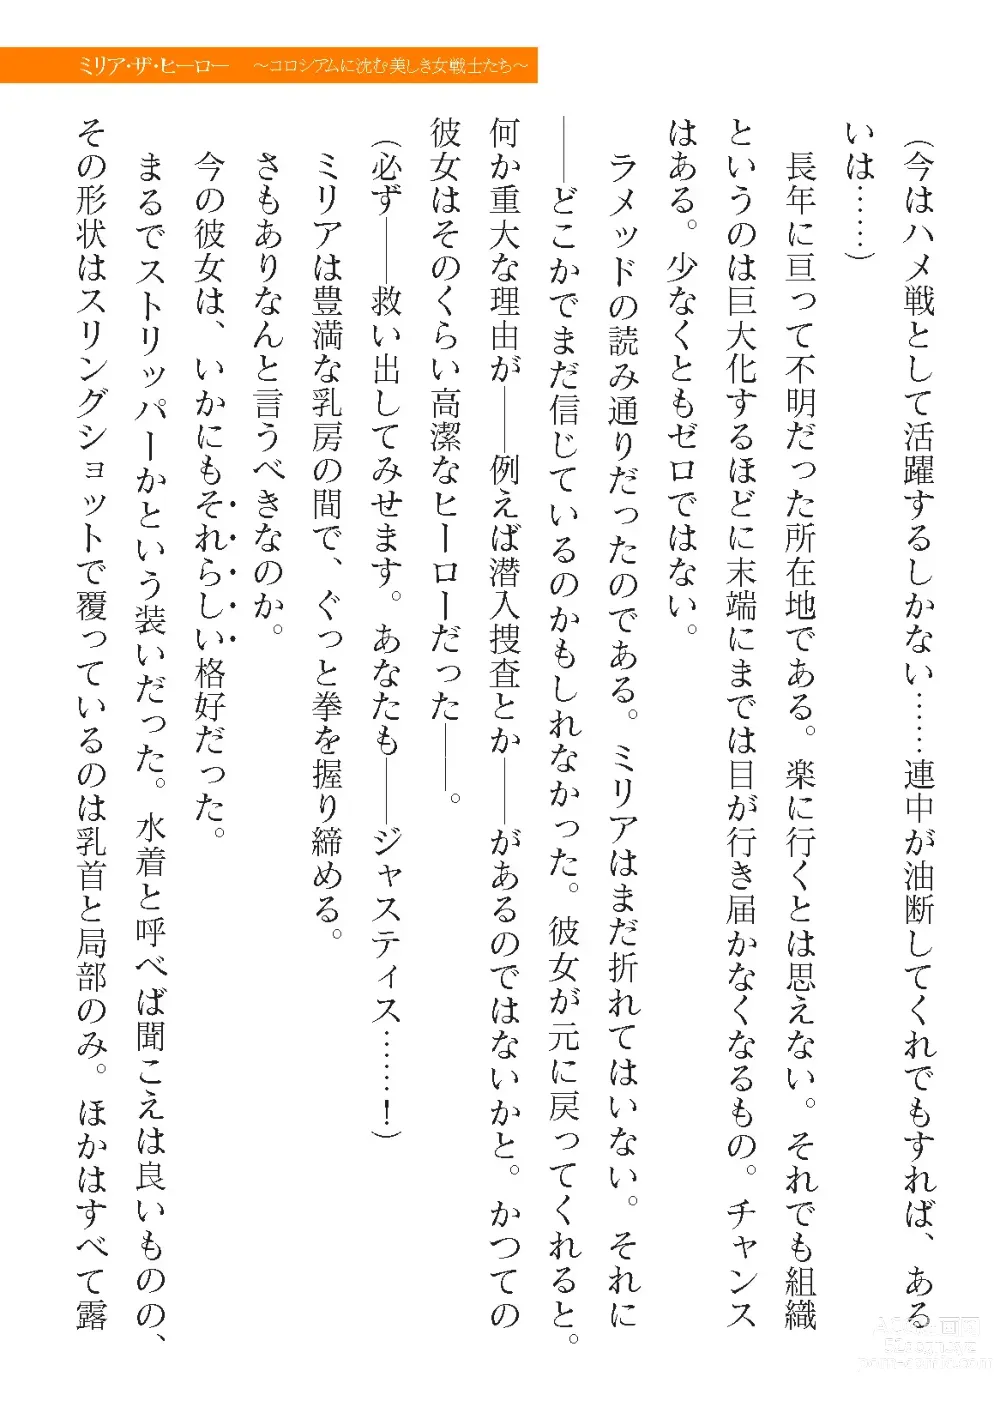 ミリア・ザ・ヒーロー　～コロシアムに沈む美しき女戦士たち～
（今はハメ戦として活躍するしかない……連中が油断してくれでもすれば、ある
いは……）
　長年に亘って不明だった所在地である。楽に行くとは思えない。それでも組織
というのは巨大化するほどに末端にまでは目が行き届かなくなるもの。チャンス
はある。少なくともゼロではない。
　ラメッドの読み通りだったのである。ミリアはまだ折れてはいない。それに
――どこかでまだ信じているのかもしれなかった。彼女が元に戻ってくれると。
何か重大な理由が――例えば潜入捜査とか――があるのではないかと。かつての
彼女はそのくらい高潔なヒーローだった――。
（必ず――救い出してみせます。あなたも――ジャスティス……！）
　ミリアは豊満な乳房の間で、ぐっと拳を握り締める。
さもありなんと言うべきなのか。
　今の彼女は、いかにもそれらしい格好だった。
　まるでストリッパーかという装いだった。水着と呼べば聞こえは良いものの、
その形状はスリングショットで覆っているのは乳首と局部のみ。ほかはすべて露
52acgn.xyz
porn-comic.com